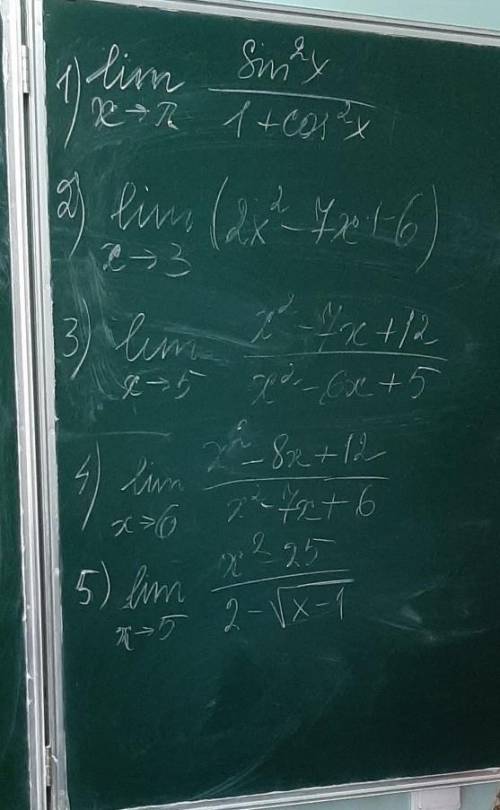 1) lim x→π sin²x / 1+cos²x
2) lim x→3 (2x² - 7x + 6)
3) lim x→5 x² - 7x + 12 / x² - 6x + 5
4) lim x→6 x² - 8x + 12 / x² - 7x + 6
5) lim x→5 x² - 25 / 2 - √x-1